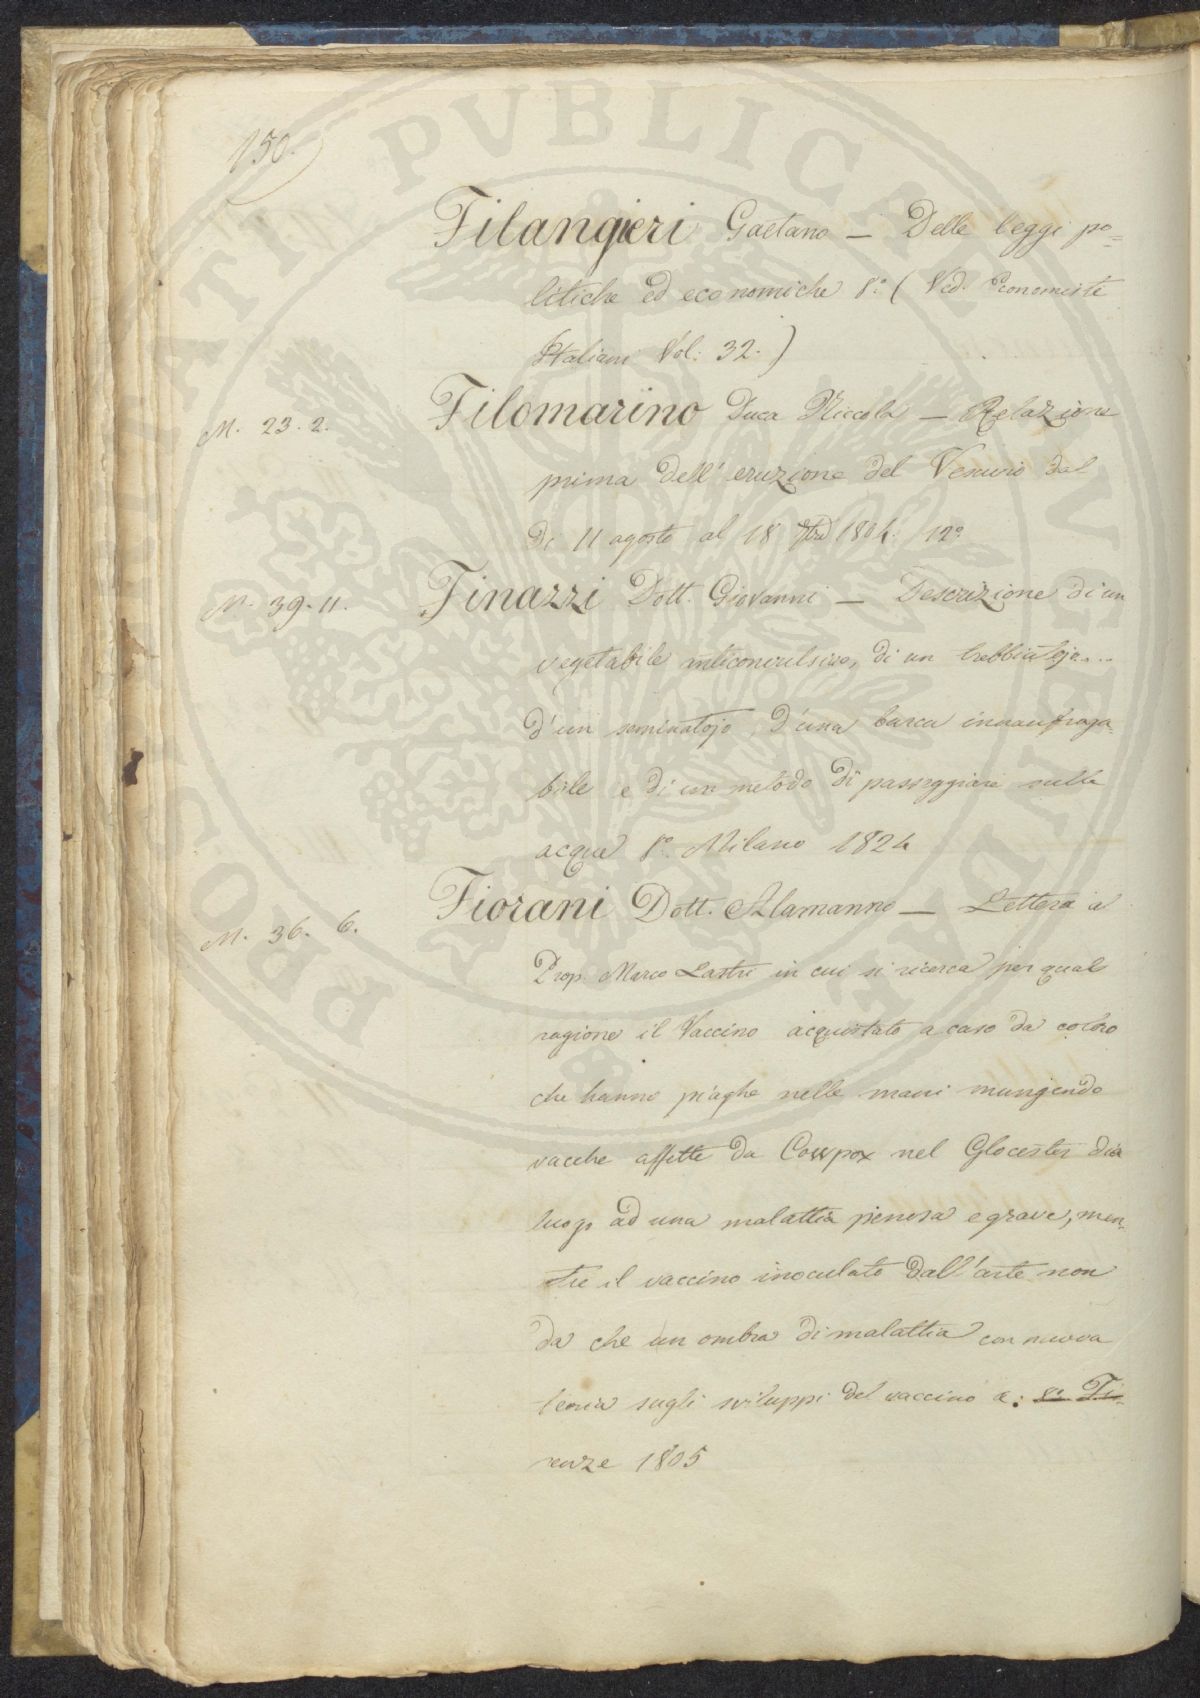 150.
Filangieri Gaetano — Delle leggi po=
litiche ed economiche 8.º ( Ved. Economisti
Italiani Vol. 32. )
M. 23. 2. Filomarino Duca Niccola — Relazione
prima dell' eruzione del Vesuvio dal
di 11 agosto al 18 7bre 1804. 12º
M. 39. 11. Finazzi Dott. Giovanni — Descrizione di un
vegetabile anticonvulsivo, di un trebbiatojo....
d'un seminatojo, d'una barca innaufraga-
bile e di un metodo di passeggiare sulle
acque 8.º Milano 1824
M. 36. 6. Fiorani Dott. Alamanno — Lettera a
Prop. Marco Lastri in cui si ricerca per qual
ragione il Vaccino acquistato a caso da coloro
che hanno piaghe nelle mani mungendo
vacche affette da Cowpox nel Glocester dia
luogo ad una malattia penosa e grave, men-
tre il vaccino inoculato dall'arte non
da che un ombra di malattia con nuova
teoria sugli sviluppi del vaccino a: 8º Fi-
renze 1805
PROBITATI PVBLICE EVGENDAE